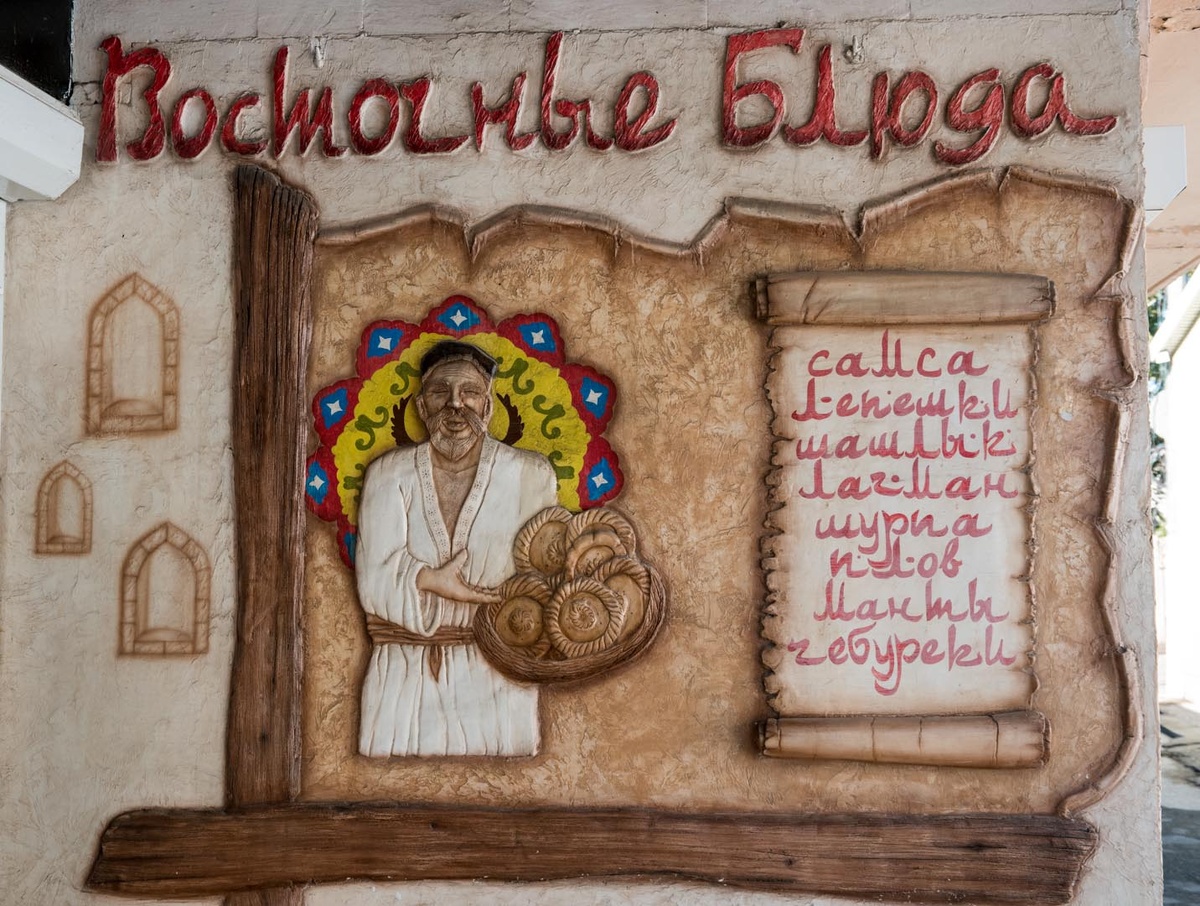 Восточные Блюда
самса
Лепешки
шашлык
Лагман
шурпа
пЛов
Манты
чебуреки